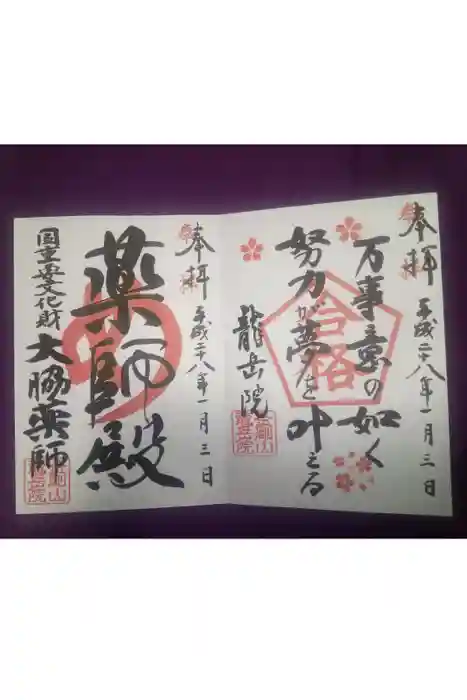 奉拝
平成二十八年一月三日
万事意の如く
努力が夢を叶える
合格
龍岳院
奉拝
平成二十八年一月三日
薬師殿
国重要文化財
大脇薬師